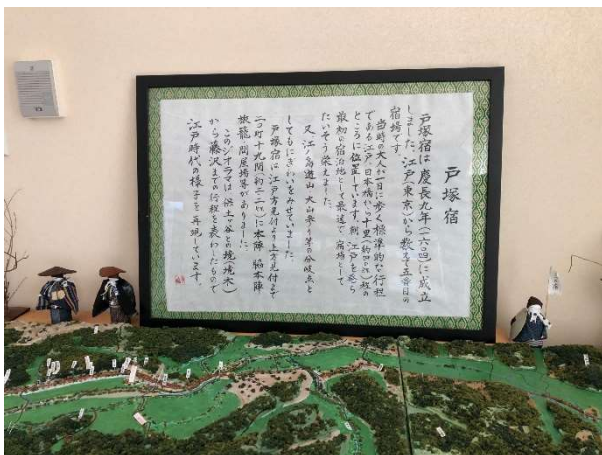 戸塚宿
戸塚宿は慶長九年(一六〇四)に成立
しました。江戸(東京)から数えて五番目の
宿場です。
当時の大人が一日に歩く標準的な行程
である江戸日本橋から十里(約四〇㎞)続の
ところに位置しています。則、江戸を発ち
最初の宿泊地として最適で、宿場として
たいそう栄えました。
又、江ノ島道山、大山参り等の分岐点と
してもにぎわいをみせていました。
戸塚宿は江戸方見付より上方見付まで
二十町十九間(約二・二㎞)に本陣、脇本陣
旅籠、問屋場等がありました。
このジオラマは保土ヶ谷との境(境木)
から藤沢までの行程を表わしたもので
江戸時代の様子を再現しています。